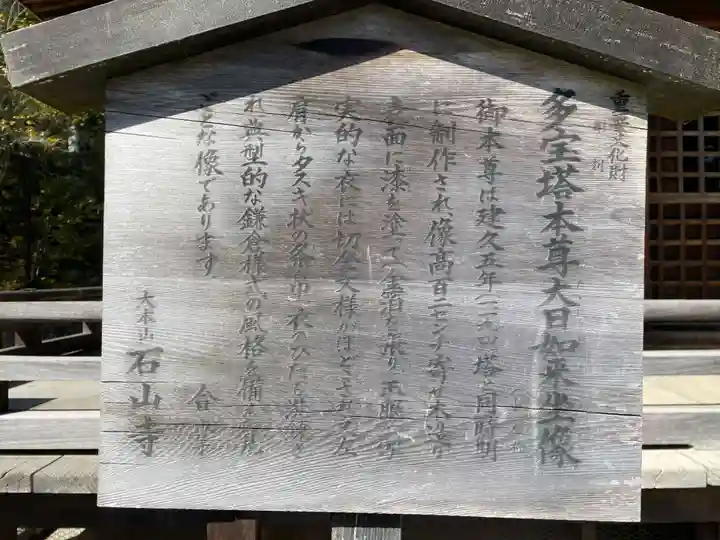 重要文化財
多宝塔本尊大日如来坐像
御本尊は建久五年(一一九四)塔と同時期
に制作され、像高百二センチ寄せ木造り
表面に漆を塗って金箔を張り、玉眼
実的な衣には切金文様がほどこされ左
肩からタスキ状の条帛、衣のひだも
れ典型的な鎌倉様式の風格を備えた
な像であります
大本山
石山寺